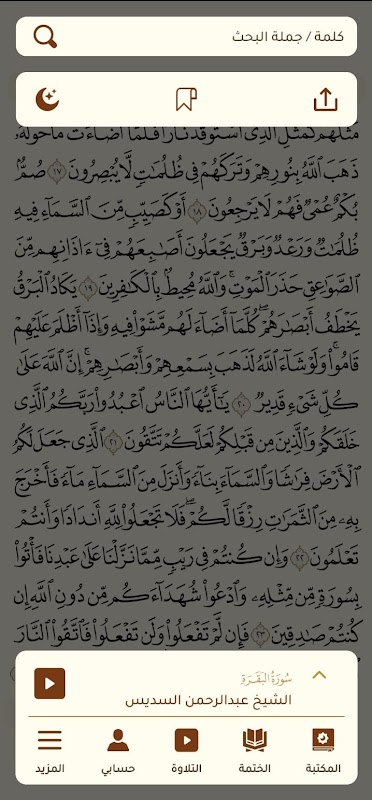 كلمة / جملة البحث
مَثَلُهُمْ كَمَثَلِ الَّذِي اسْتَوْقَدَ نَارًا فَلَمَّا أَضَاءَتْ مَا حَوْلَهُ
ذَهَبَ اللَّهُ بِنُورِهِمْ وَتَرَكَهُمْ فِي ظُلُمَاتٍ لَّا يُبْصِرُونَ ١٧ صُمٌّ
بُكْمٌ عُمْيٌ فَهُمْ لَا يَرْجِعُونَ ١٨ أَوْ كَصَيِّبٍ مِّنَ السَّمَاءِ فِيهِ
ظُلُمَاتٌ وَرَعْدٌ وَبَرْقٌ يَجْعَلُونَ أَصَابِعَهُمْ فِي ءَاذَانِهِم مِّنَ
الصَّوَاعِقِ حَذَرَ الْمَوْتِ ۚ وَاللَّهُ مُحِيطٌ بِالْكَافِرِينَ ١٩ يَكَادُ الْبَرْقُ
يَخْطَفُ أَبْصَارَهُمْ ۖ كُلَّمَا أَضَاءَ لَهُم مَّشَوْا فِيهِ وَإِذَا أَظْلَمَ عَلَيْهِمْ
قَامُوا ۚ وَلَوْ شَاءَ اللَّهُ لَذَهَبَ بِسَمْعِهِمْ وَأَبْصَارِهِمْ ۚ إِنَّ اللَّهَ عَلَىٰ
كُلِّ شَيْءٍ قَدِيرٌ ٢٠ يَا أَيُّهَا النَّاسُ اعْبُدُوا رَبَّكُمُ الَّذِي
خَلَقَكُمْ وَالَّذِينَ مِن قَبْلِكُمْ لَعَلَّكُمْ تَتَّقُونَ ٢١ الَّذِي جَعَلَ لَكُمُ
الْأَرْضَ فِرَاشًا وَالسَّمَاءَ بِنَاءً وَأَنزَلَ مِنَ السَّمَاءِ مَاءً فَأَخْرَجَ
بِهِ مِنَ الثَّمَرَاتِ رِزْقًا لَّكُمْ ۖ فَلَا تَجْعَلُوا لِلَّهِ أَندَادًا وَأَنتُمْ
تَعْلَمُونَ ٢٢ وَإِن كُنتُمْ فِي رَيْبٍ مِّمَّا نَزَّلْنَا عَلَىٰ عَبْدِنَا فَأْتُوا
بِسُورَةٍ مِّن مِّثْلِهِ وَادْعُوا شُهَدَاءَكُم مِّن دُونِ اللَّهِ إِن
كُنتُمْ صَادِقِينَ ٢٣ فَإِن لَّمْ تَفْعَلُوا وَلَن تَفْعَلُوا فَاتَّقُوا النَّارَ
سُورَةُ البَقَرَةِ
الشيخ عبدالرحمن السديس
المكتبة
الختمة
التلاوة
حسابي
المزيد